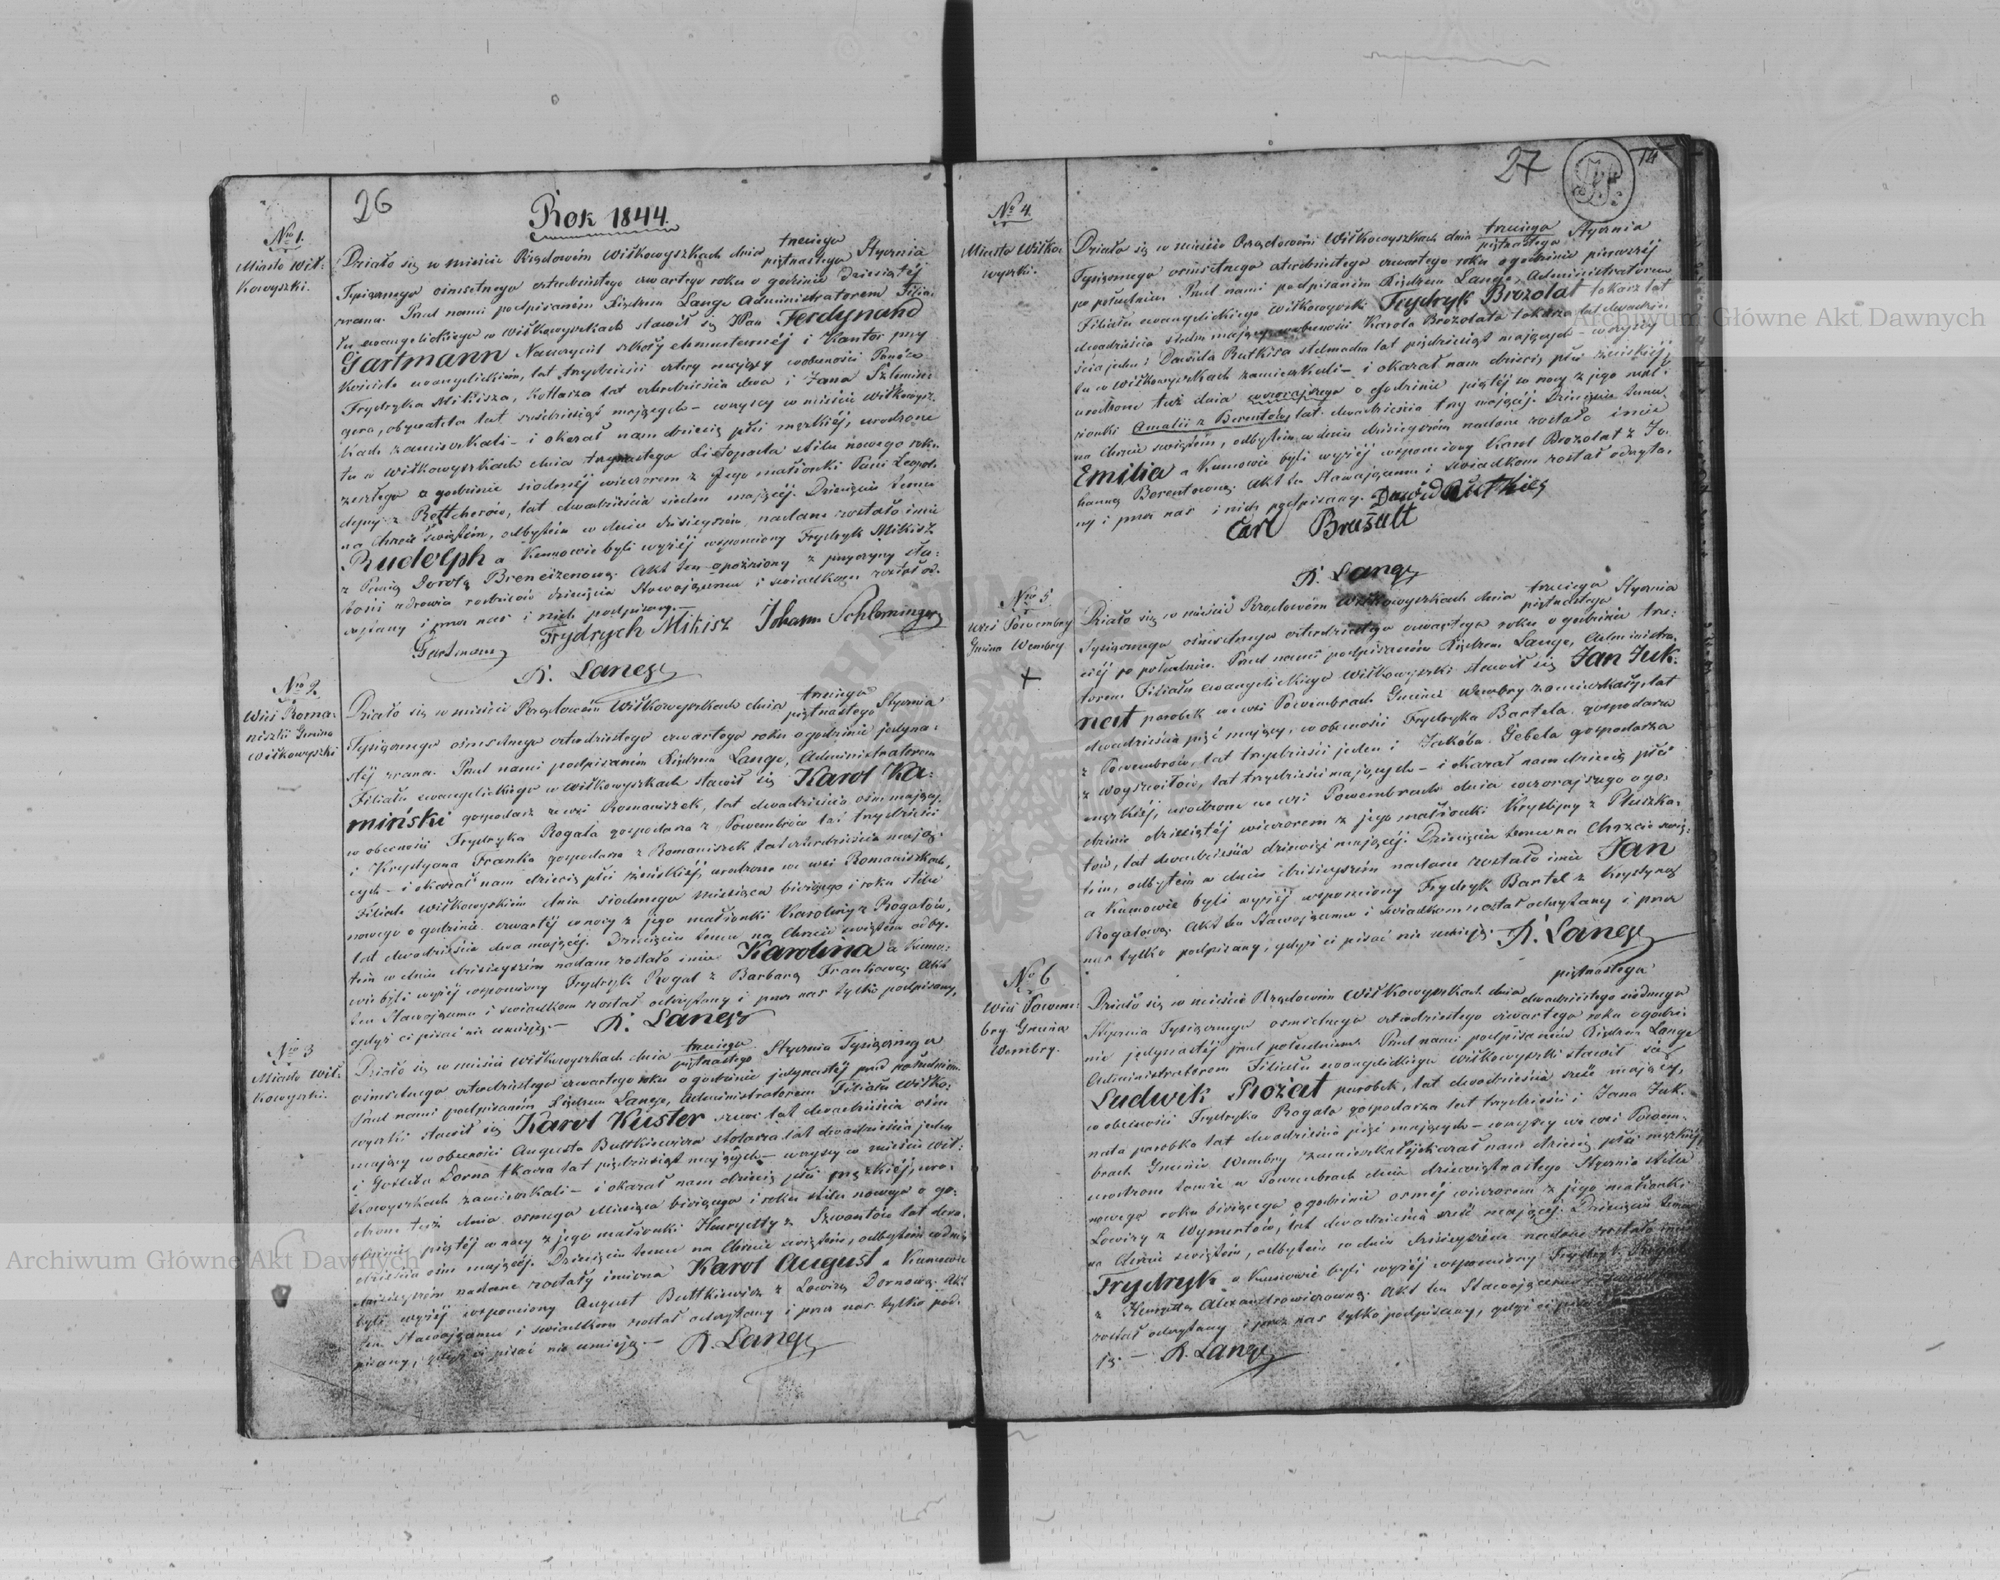 26
Rok 1844.
Nro 1.
Miasto Wił-
kowyszki.
Działo się w mieście Rządowém Wiłkowyszkach dnia trzeciego/piętnastego Stycznia
Tysiącznego ośmsetnego czterdziestego czwartego roku o godzinie dziesiątéj
zrana. Przed nami podpisanym Xiędzem Lange Administratorem Filia-
łu ewangelickiego w Wiłkowyszkach stawił się Pan Ferdynand
Gartmann Nauczyciel szkoły elementarnéj i Kantor przy
Kościele ewangelickim, lat trzydzieści cztery mający w obecności Panów
Frydryka Mikisza, Kotlarza lat czterdzieścia dwa i Jana Szlemin-
gera, obywatela lat sześćdziesiąt mających – wszyscy w mieście Wiłkowysz-
kach zamieszkali – i okazał nam dziecię płci męzkiéj, urodzone
tu w Wiłkowyszkach dnia trzynastego Listopada stilu nowego roku
zeszłego o godzinie siodméj wieczorem z Jego małżonki Pani Leopol-
dyny z Bettcherów, lat dwadzieścia siedm mającéj. Dziecięciu temu
na Chrzcie świętém, odbytém w dniu dzisieyszém nadane zostało imie
Rudolph a Kumowie byli wyżéj wspomniony Frydryk Mikisz
z Panią Dorotą Breneizenową. Akt ten opóźniony z przyczyny sła-
bości zdrowia rodziców dziecięcia Stawającemu i swiadkom został od-
czytany i przez nas i nich podpisany. –
Gartmann Frydrych Mikisz Johann Schleminger
A. Lange
Nro 2.
Wieś Roma-
niszki Gmina
Wiłkowyszki
Działo się w mieście Rządowém Wiłkowyszkach dnia trzeciego/piętnastego Stycznia
Tysiącznego ośmsetnego czterdziestego czwartego roku o godzinie jedyna-
stéj zrana. Przed nami podpisaném Xiędzem Lange, Administratorem
Filiału ewangelickiego w Wiłkowyszkach stawił się Karol Ka-
miński gospodarz ze wsi Romaniszek, lat dwadzieścia ośm mający,
w obecności Frydryka Rogala gospodarza z Powembrów lat trzydzieści
i Krystyana Franka gospodarza z Romaniszek lat czterdzieścia mają-
cych – i okazał nam dziecię płci żeńskiéj, urodzone we wsi Romaniszkach
Filiale Wiłkowyskim dnia siodmego Miesiąca bieżącego i roku stilu
nowego o godzinie czwartéj w nocy z jego małżonki Karoliny z Rogalów,
lat dwadzieścia dwa mającéj. Dziecięciu temu na Chrzcie świętém odby-
tém w dniu dzisieyszém nadane zostało imie Karolina a Kumo-
wie byli wyżéj wspomniony Frydryk Rogal z Barbarą Frankową. Akt
ten Stawającemu i swiadkom został odczytany i przez nas tylko podpisany,
gdyż ci pisać nie umieją. – A. Lange
Nro 3
Miasto Wił-
kowyszki.
Działo się w mieście Wiłkowyszkach dnia trzeciego/piętnastego Stycznia Tysiącznego
ośmsetnego czterdziestego czwartego roku o godzinie jedynastéj przed południem.
Przed nami podpisaném Xiędzem Lange, Administratorem Filiału Wiłko-
wyszki stawił się Karol Kuster szewc lat dwadzieścia ośm
mający w obecności Augusta Buttkiewicza stolarza lat dwadzieścia jeden
i Gotliba Dorna tkacza lat pięćdziesiąt mających – wszyscy w mieście Wił-
kowyszkach zamieszkali – i okazał nam dziecię płci męzkiéj, uro-
dzone też dnia osmego Miesiąca bieżącego i roku stilu nowego o go-
dzinie piątéj w nocy z jego małżonki Henryetty z Szwartów lat dwa-
dzieścia ośm mającéj. Dziecięciu temu na Chrzcie świętém, odbytém w dniu
dzisieyszém nadane zostały imiona Karol August a Kumowie
byli wyżéj wspomniony August Buttkiewicz z Lowizą Dornową. Akt
ten Stawającemu i swiadkom został odczytany i przez nas tylko pod-
pisany, gdyż ci pisać nie umieją. – A. Lange
27
14
Nro 4.
Miasto Wiłko-
wyszki.
Działo się w mieście Rządowém Wiłkowyszkach dnia trzeciego/piętnastego Stycznia
Tysiącznego ośmsetnego czterdziestego czwartego roku o godzinie pierwszéj
po południu. Przed nami podpisaném Xiędzem Lange, Administratorem
Filiału ewangelickiego Wiłkowyszki Frydryk Brozolat tokarz lat
dwadzieścia siedm mający w obecności Karola Brozolata tokarza lat dwadzie-
ścia jeden i Dawida Rutkisa stelmacha lat pięćdziesiąt mających – wszyscy
tu w Wiłkowyszkach zamieszkali – i okazał nam dziecię płci żeńskiéj,
urodzone też dnia wczorajszego o godzinie piątéj w nocy z jego mał-
żonki Amalii z Berentów, lat dwadzieścia trzy mającéj. Dziecięciu temu
na Chrzcie świętém, odbytém w dniu dzisieyszém nadane zostało imie
Emilia a Kumowie byli wyżéj wspomniony Karol Brozolat z Jo-
hanną Berentową. Akt ten Stawającemu i swiadkom został odczyta-
ny i przez nas i nich podpisany. Dawid Rutkies
Carl Braśatt
A. Lange
Nro 5.
Wieś Powembry
Gmina Wembry
+
Działo się w mieście Rządowém Wiłkowyszkach dnia trzeciego/piętnastego Stycznia
Tysiącznego ośmsetnego czterdziestego czwartego roku o godzinie trze-
ciéj po południu. Przed nami podpisaném Xiędzem Lange, Administra-
torem Filiału ewangelickiego Wiłkowyszki stawił się Jan Juk-
nat parobek we wsi Powembrach Gminie Wembry zamieszkały, lat
dwadzieścia pięć mający, w obecności Frydryka Bartela gospodarza
z Powembrów, lat trzydzieści jeden i Jakóba Gebela gospodarza
z Woyszwiłów, lat trzydzieści mających – i okazał nam dziecię płci
męzkiéj, urodzone we wsi Powembrach dnia wczorajszego o go-
dzinie dziesiątéj wieczorem z jego małżonki Krystyny z Pluszka-
tów, lat dwadzieścia dziewięć mającéj. Dziecięciu temu na Chrzcie świę-
tém, odbytém w dniu dzisieyszém nadane zostało imie Jan
a Kumowie byli wyżéj wspomniony Frydryk Bartel z Krystyną
Rogalową. Akt ten Stawającemu i swiadkom został odczytany i przez
nas tylko podpisany, gdyż ci pisać nie umieją. A. Lange
Nro 6
Wieś Powem-
bry Gmina
Wembry.
Działo się w mieście Rządowém Wiłkowyszkach dnia piętnastego/dwudziestego siodmego
Stycznia Tysiącznego ośmsetnego czterdziestego czwartego roku o godzi-
nie jedynastéj przed południem. Przed nami podpisaném Xiędzem Lange
Administratorem Filiału ewangelickiego Wiłkowyszki stawił się
Ludwik Rożat parobek, lat dwadzieścia sześć mający,
w obecności Frydryka Rogala gospodarza lat trzydzieści i Jana Juk-
nata parobka lat dwadzieścia pięć mających – wszyscy we wsi Powem-
brach Gminie Wembry zamieszkali i okazał nam dziecię płci męzkiéj,
urodzone tamże w Powembrach dnia dziewiętnastego Stycznia stilu
nowego roku bieżącego o godzinie osméj wieczorem z jego małżonki
Lowizy z Wymertów, lat dwadzieścia sześć mającéj. Dziecięciu temu
na Chrzcie świętém, odbytém w dniu dzisieyszém nadane zostało imie
Frydryk a Kumowie byli wyżéj wspomniony Frydryk Rogal
z Henryettą Alexandrowiczówną. Akt ten Stawającemu i swiadkom
został odczytany i przez nas tylko podpisany, gdyż ci pisać
ią. – A. Lange
Archiwum Główne Akt Dawnych
Archiwum Główne Akt Dawnych